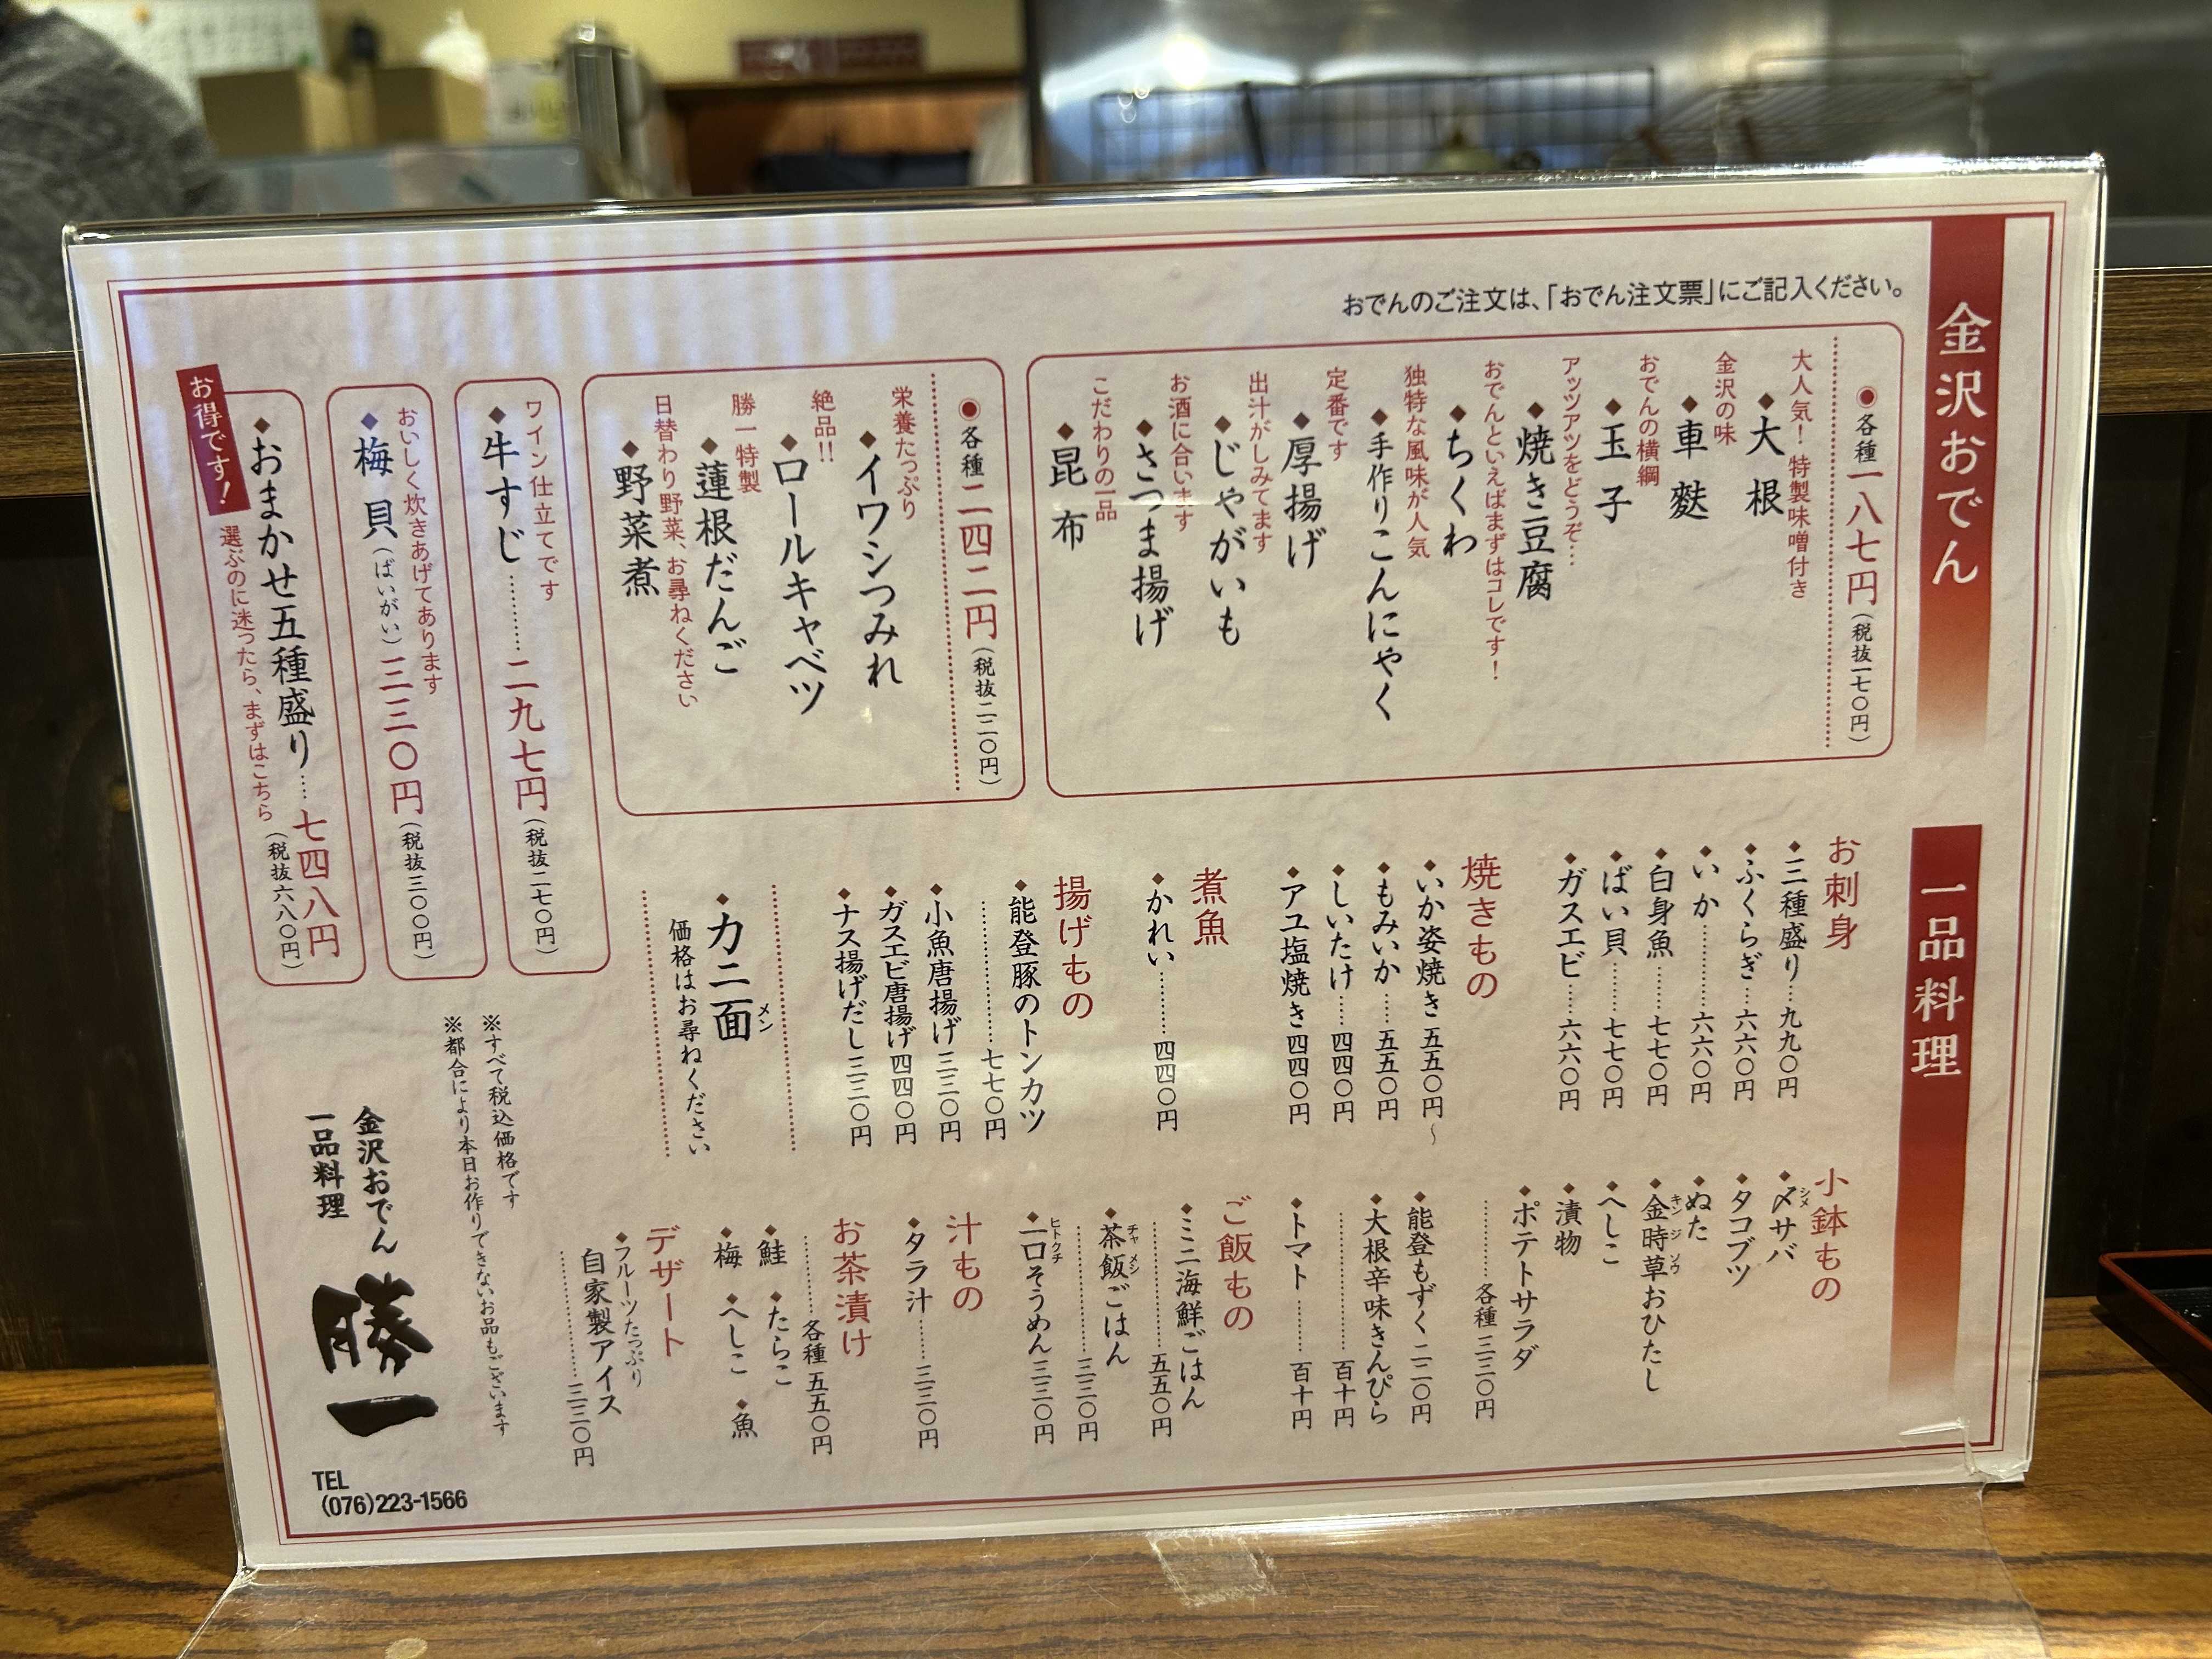 金沢おでん
おでんのご注文は、「おでん注文票」にご記入ください。
◉各種一八七円（税抜一七〇円）
大人気！特製味噌付き
◆大根
金沢の味
◆車麩
おでんの横綱
◆玉子
アッツアツをどうぞ…
◆焼き豆腐
おでんといえばまずはコレです！
◆ちくわ
独特な風味が人気
◆手作りこんにゃく
定番です
◆厚揚げ
出汁がしみてます
◆じゃがいも
お酒に合います
◆さつま揚げ
こだわりの一品
◆昆布
◉各種二四二円（税抜二二〇円）
栄養たっぷり
◆イワシつみれ
絶品!!
◆ロールキャベツ
勝一特製
◆蓮根だんご
日替わり野菜、お尋ねください
◆野菜煮
ワイン仕立てです
◆牛すじ………二九七円（税抜二七〇円）
おいしく炊きあげてあります
◆梅貝（ばいがい）三三〇円（税抜三〇〇円）
お得です！
◆おまかせ五種盛り……七四八円（税抜六八〇円）
選ぶのに迷ったら、まずはこちら
一品料理
お刺身
◆三種盛り……九九〇円
◆ふくらぎ……六六〇円
◆いか………六六〇円
◆白身魚……七七〇円
◆ばい貝……七七〇円
◆ガスエビ……六六〇円
焼きもの
◆いか姿焼き 五五〇円〜
◆もみいか……五五〇円
◆しいたけ……四四〇円
◆アユ塩焼き 四四〇円
煮魚
◆かれい………四四〇円
揚げもの
◆能登豚のトンカツ
………七七〇円
◆小魚唐揚げ 三三〇円
◆ガスエビ唐揚げ 四四〇円
◆ナス揚げだし 三三〇円
◆カニ面メン
価格はお尋ねください
小鉢もの
◆〆シメサバ
◆タコブツ
◆ぬた
◆金時草キンジソウおひたし
◆へしこ
◆漬物
◆ポテトサラダ
………各種 三三〇円
◆能登もずく 二二〇円
◆大根辛味きんぴら
………百十円
◆トマト……百十円
ご飯もの
◆ミニ海鮮ごはん
………五五〇円
◆茶飯チャメシごはん
………三三〇円
◆一口ヒトクチそうめん 三三〇円
汁もの
◆タラ汁……三三〇円
お茶漬け
………各種 五五〇円
◆鮭 ◆たらこ
◆梅 ◆へしこ ◆魚
デザート
◆フルーツたっぷり
自家製アイス
………三三〇円
※すべて税込価格です
※都合により本日お作りできないお品もございます
金沢おでん
一品料理
勝一
TEL
(076)223-1566